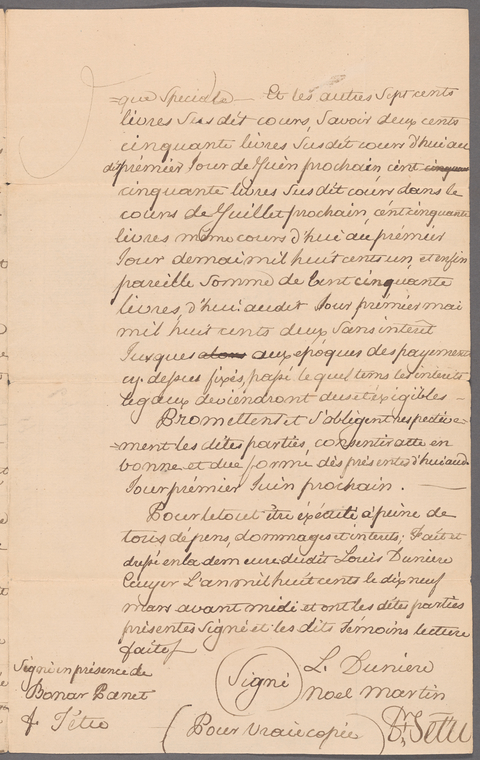 =que speciale — Et les autres Sept cents
livres Susdit cours, Savoir deux cents
cinquante livres Susdit cours d'hui au
dit prémier Jour de Juin prochain cent cinquan
cinquante livres Susdit cours dans le
cours de Juillet prochain, cent cinquante
livres même cours d'hui au prémier
Jour de mai mil huit cent un, et enfin
pareille Somme de Cent cinquante
livres, d'hui audit Jour prémier mai
mil huit cents deux Sans interêt
Jusques alors aux epoques des payements
cy dessus fixés, passé lequel tems les interets
legaux deviéndront dus et éxigibles —
Promettent et S'obligent respective-
=ment les dites parties, consentir acte en
bonne et due forme des présentes d'hui aud.
Jour prémier Juin prochain . —
Pour le tout être éxécuté a peine de
tous dépens, dommages et interets; Fait et
dressé en la demeure dudit Louis Duniere
Ecuyer L'an mil huit cents le dix neuf
mars avant midi et ont les dites parties
présentes Signé et les dits témoins lecture
faite
Signé en présence de
Bonav Panet
f. Tétu
Signé
L. Duniere
Noel Martin
(Pour Vraie copie)
Tétu